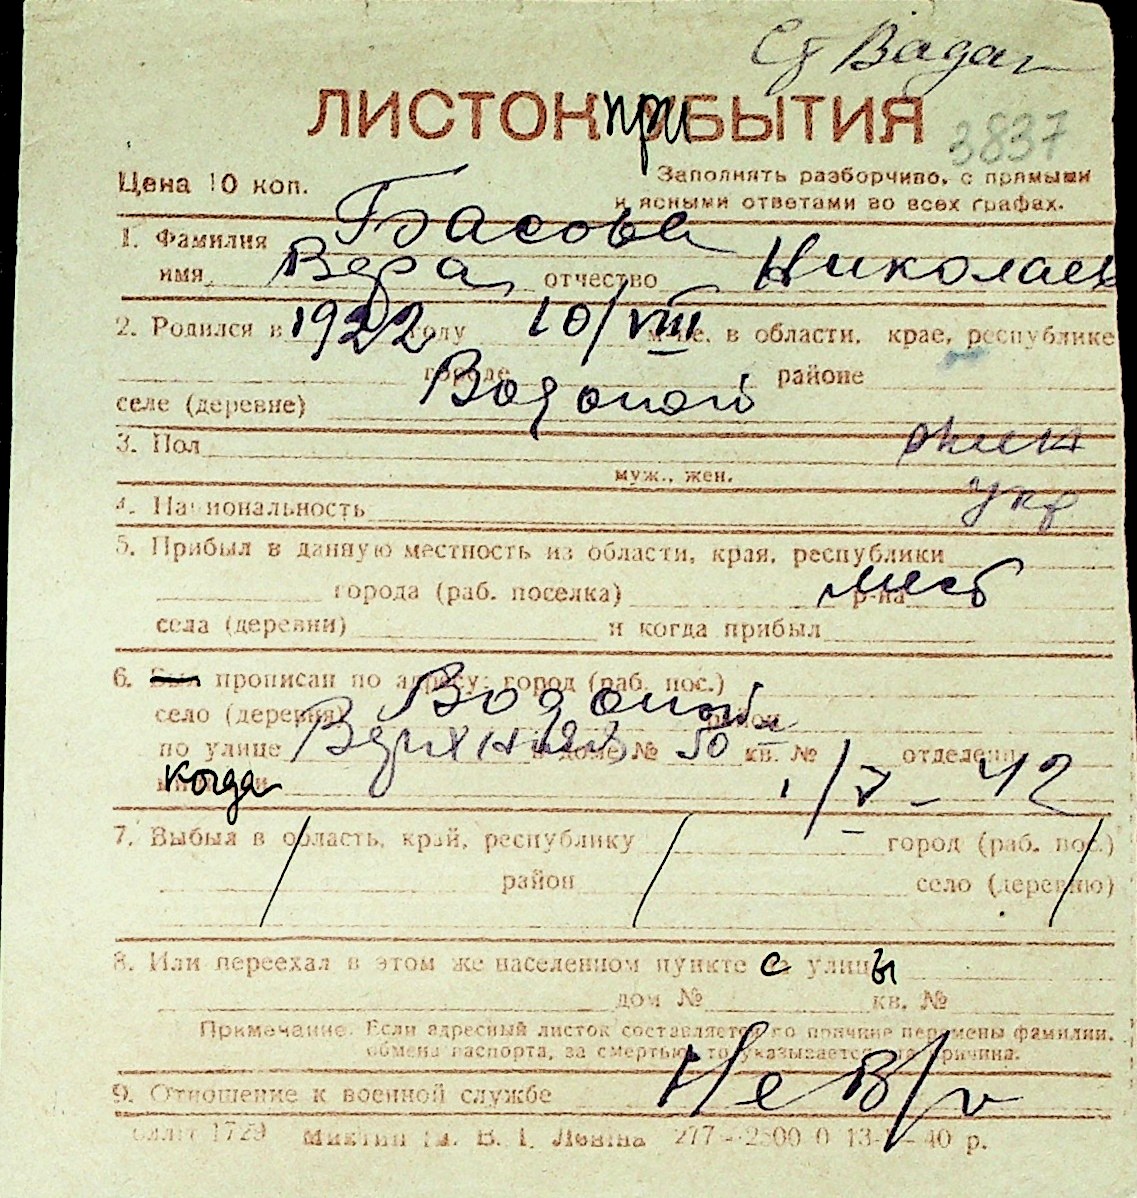 Ст Вадап
ЛИСТОК прИБЫТИЯ
3837
Цена 10 коп.
Заполнять разборчиво, с прямыми
и ясными ответами во всех графах.
1. Фамилия Басова
имя Вера, отчество Николаев
2. Родился в 1922 году 10/VIII м-це, в области, крае, республике
городе районе
селе (деревне) Водопой
3. Пол жен
муж., жен.
4. Национальность укр
5. Прибыл в данную местность из области, края, республики
города (раб. поселка) р-на мест
села (деревни) и когда прибыл
6. прописан по адресу: город (раб. пос.)
село (деревня) Водопой район
по улице Верхняя в доме № 50 кв. № отделени
когда 1/V - 42
7. Выбыл в область, край, республику город (раб. пос.)
район село (деревню)
8. Или переехал в этом же населенном пункте с улицы
дом № кв. №
Примечание. Если адресный листок составляется по причине перемены фамилии,
обмена паспорта, за смертью, то указывается эта причина.
9. Отношение к военной службе Не в/
1729 ім. В. І. Леніна 277 - 2500 0 13- - 40 р.